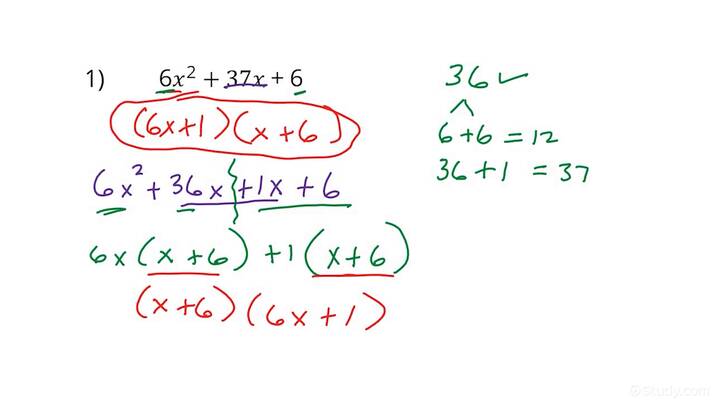 1) 6x² + 37x + 6
(6x+1)(x+6)
6x² + 36x + 1x + 6
6x(x+6) + 1(x+6)
(x+6)(6x+1)
36 ✓
6+6 = 12
36+1 = 37
Study.com